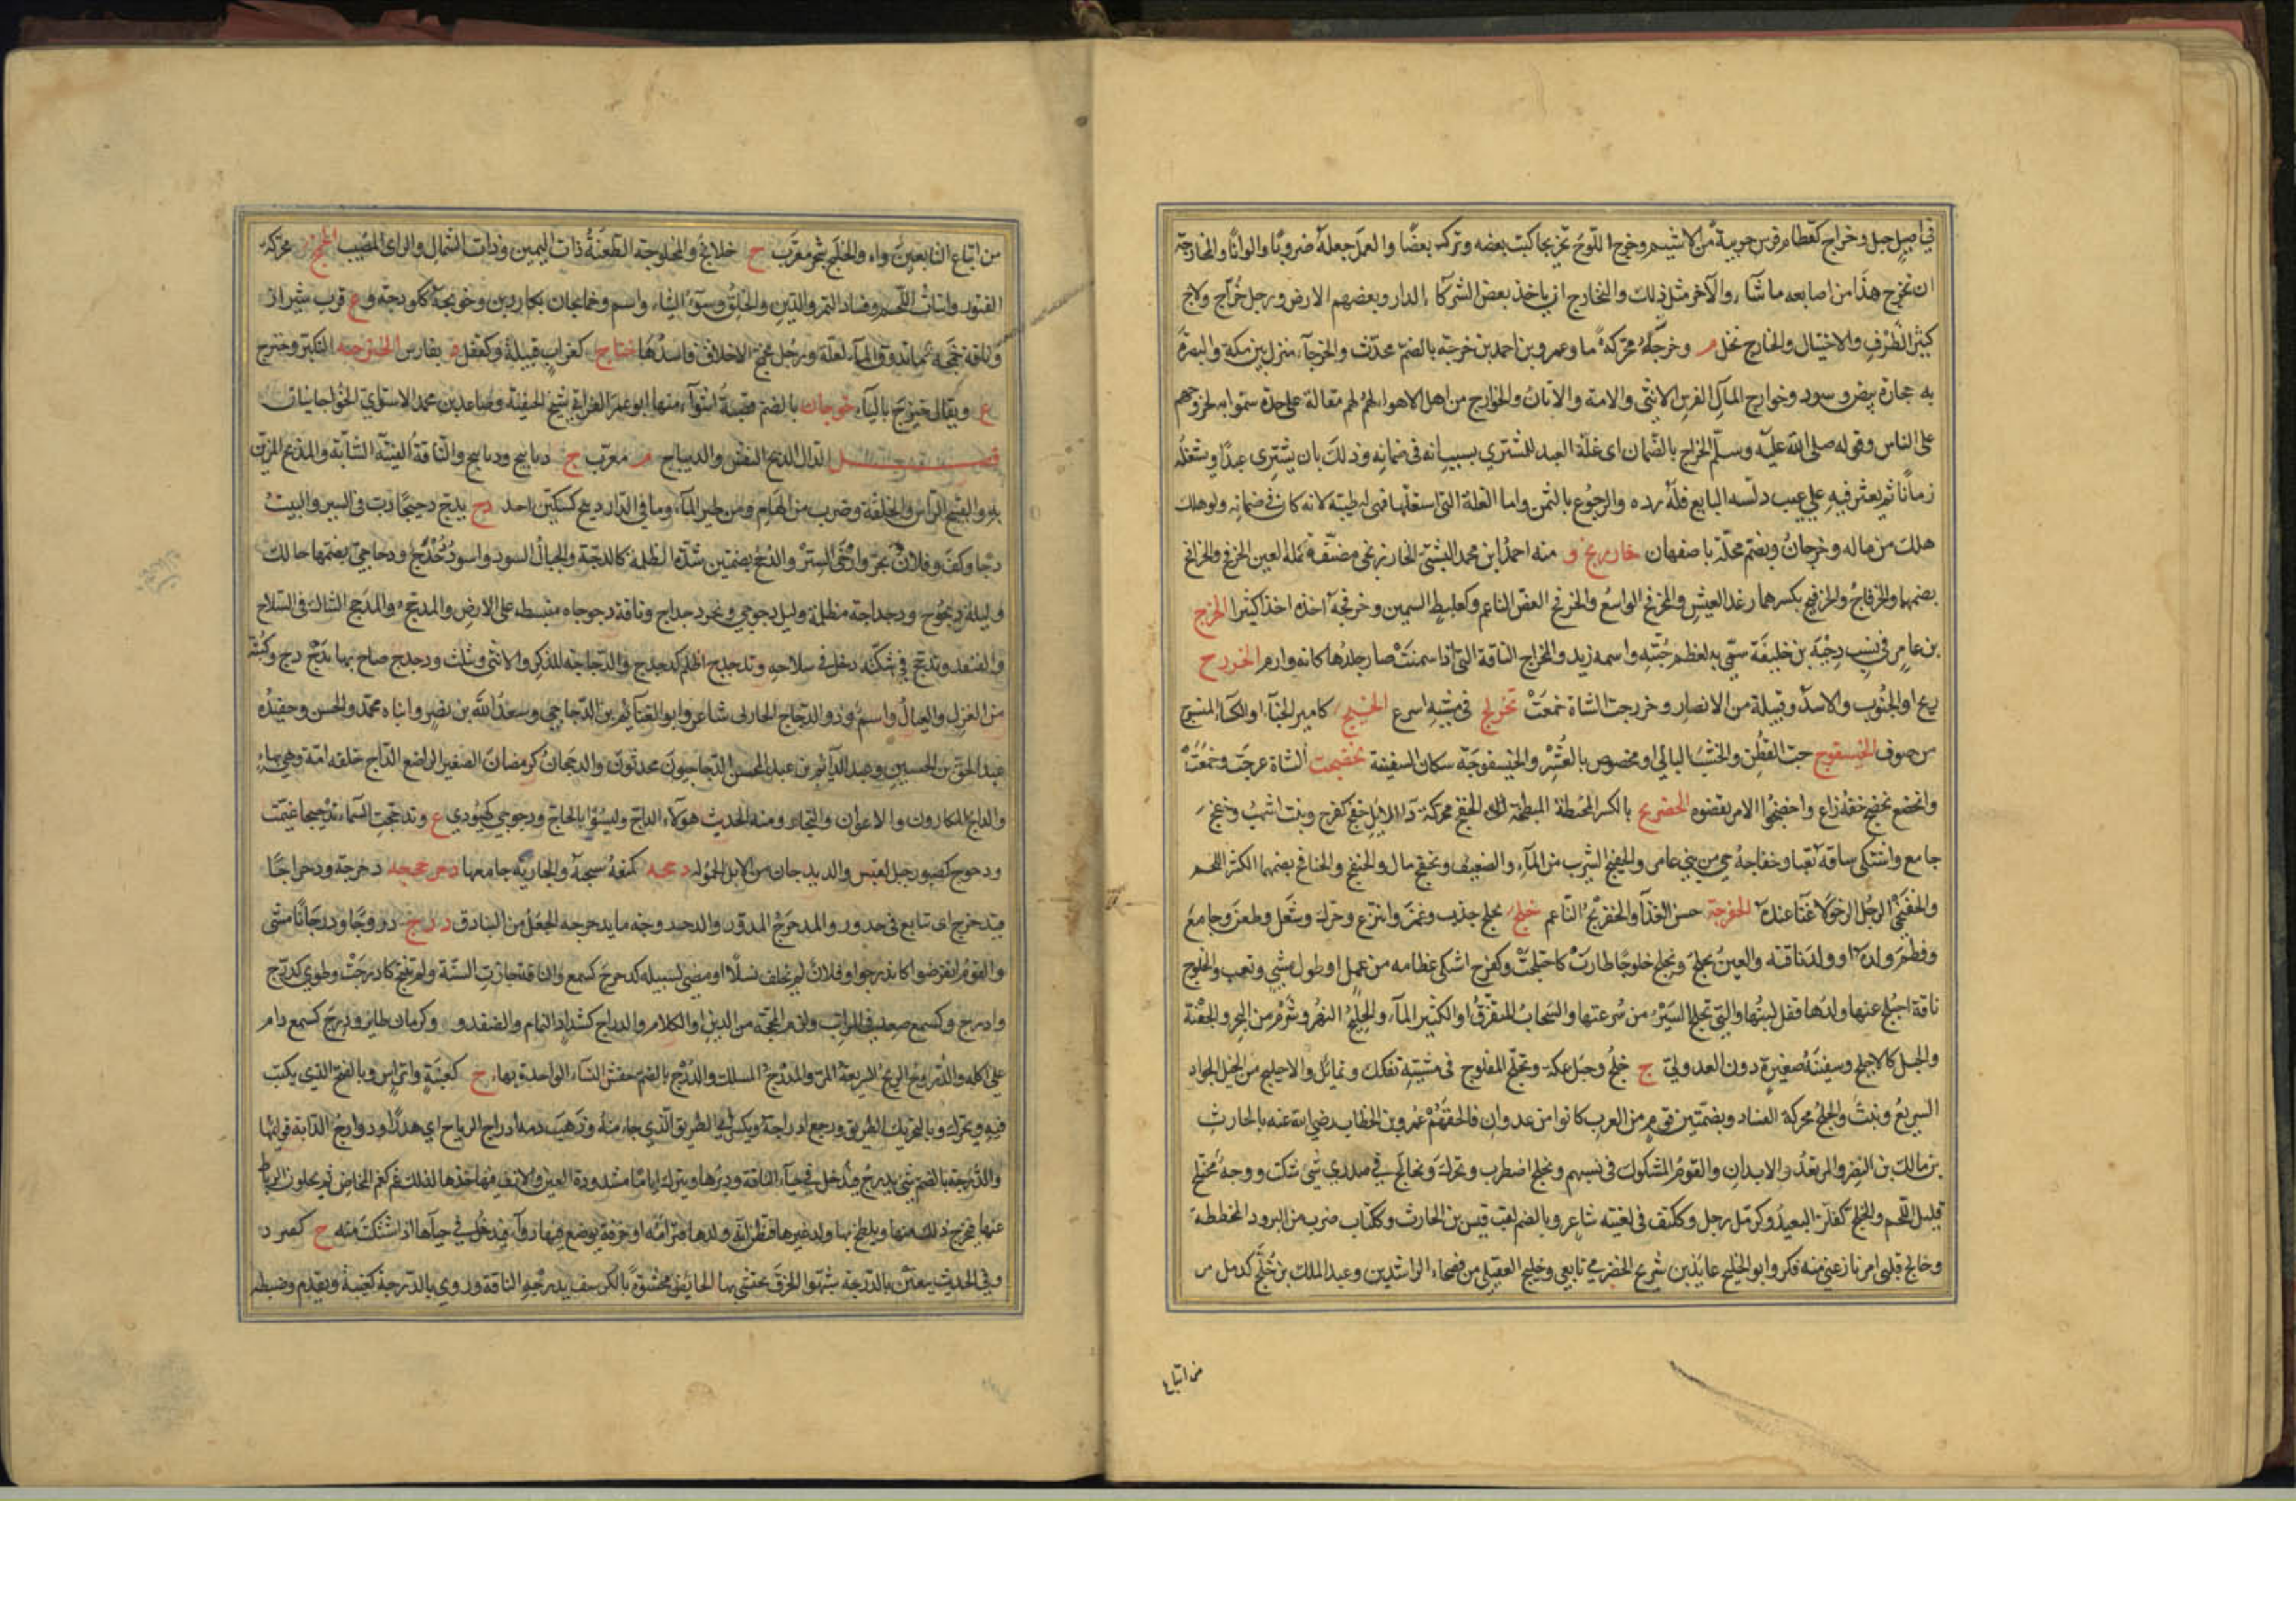 في اصيل جبل وخراج كقطام فرس جريبة بن الاشيم وخرج اللوح تخريجا كتب بعضه وترك بعضًا والعمل جعله ضروبًا والوانًا والمخارجة
ان تخرج هذا من اصابعه ما شاء والآخر مثل ذلك والتخارج ان ياخذ بعض الشركاء الدار وبعضهم الارض ورجل خراج ولاج
كثير الظرف والاحتيال والخارج نخل م وخرجة محركة ما وعمرو بن احمد بن خرجة بالضم محدث والخرجاء منزل بين مكة والبصرة
به حجارة بيض وسود وخوارج المال الفرس الانثى والامة والاتان والخوارج من اهل الاهواء لهم مقالة على حدة سموا به لخروجهم
على الناس وقوله صلى الله عليه وسلم الخراج بالضمان اى غلة العبد للمشتري بسبب انه في ضمانه وذلك بان يشتري عبدًا ويستغله
زمانًا ثم يعثر فيه على عيب دلسه البايع فله رده والرجوع بالثمن واما الغلة التى استغلها فهى له طيبة لانه كان في ضمانه ولو هلك
هلك من ماله وخرجان ويضم محلة باصفهان خارزنج منه احمد بن محمد البشتى الخارزنجى مصنف تكملة العين الخرفج والخرافج
بضمهما والخرفاج والخرفيج بكسرهما رغد العيش والمخرفج الواسع والخرفج الغض الناعم وكعلبط السمين وخرفجه اخذه اخذا كثيرا الخزج
بن عامر في نسب دحية بن خليفة سمى به لعظم جثته واسمه زيد والمخزاج الناقة التى اذا سمنت صار جلدها كانه وارم الخزرج
ريح او الجنوب والاسد وقبيلة من الانصار وخزرجت الشاة خمعت تخزلج في مشيه اسرع الخسيج كامير الخباء او الكساء المنسوج
من صوف الخيسفوج حب القطن والخشب البالي او مخصوص بالعشر والخيسفوجة سكان السفينة تخضجت الشاة عرجت وخمعت
جامع واشتكى ساقه تعبا وخفاجة حي من بني عامر والخفيج الشرب من الماء والضعيف وتخفج مال والخنفج والخنافج بضمهما الكثير اللحم
والخفنجى الرجل الرخو لا غناء عنده الخفرجة حسن الغذاء والخفرنج الناعم خلج يخلج جذب وغمز وانتزع وحرك وشغل وطعن وجامع
وفطم ولده او ولد ناقته والعين تخلج وتخلج خلوجًا طارت كاختلجت وكفرح اشتكى عظامه من عمل او طول مشي وتعب والخلوج
ناقة اختلج عنها ولدها فقل لبنها والتي تخلج السير من سرعتها والسحاب المتفرق او الكثير الماء والخليج النهر وشرم من البحر والجفنة
والحبل كالاخلج وسفينة صغيرة دون العدولي ج خلج وحبل محكم وتخلج المفلوج في مشيته تفكك وتمايل والاخليج من الخيل الجواد
السريع ونبت والخلج محركة الفساد وبضمتين قوم من العرب كانوا من عدوان فالحقهم عمر بن الخطاب رضي الله عنه بالحارث
بن مالك بن النضر والمرتعدو الابدان والقوم المشكوك في نسبهم وتخلج اضطرب وتحرك وتخالج في صدري شيء شكت ووجه مختلج
قليل اللحم والخلج كفلز البعيد وكزمل رجل وككتف في لغيته شاعر وبالضم لقب قيس بن الحارث وككتاب ضرب من البرود المخططة
وخالج قلبي امر نازعنى منه فكر وابو الخليج عايذ بن شريح الحضرمي تابعي وخليج العقيلي من فصحاء الراشدين وعبد الملك بن خلج كدمل من
من اتباع
من اتباع التابعين واه والخلنج شجر معرب ج خلانج والمخلوجة الطعنة ذات اليمين وذات الشمال والراى المصيب الخمج محركة
الفتور وانتان اللحم وفساد التمر والدين والخلق وسوء الثناء واسم وخمايجان بكازرين وخونجة كلوذجة وع قرب شيراز
ع ويقال خيزج بالياء خوجان بالضم قصبة استوا منها ابو عمر الفراتي شيخ الحنفية وصاعد بن محمد الاستوائي الخواجانيان
فصل الدال الدبج النقش والديباج م معرب ج دبابيج وديابيج والناقة الفتية الشابة والمدبج المزين
به والقبيح الراس والخلقة وضرب من الهام ومن طير الماء وما في الدار دبيج كسكين احد دج يدج دجيجًا دب في السير والبيت
دجا وكف وفلان تجر وارخى الستر والدجج بضمتين شدة الظلمة كالدجة والجبال السود واسود دجدج ودجاجي بضمهما حالك
وليلة ديجوج ودجداجة مظلمة وليل دجوجي وبحر دجداج وناقة دجوجاة منبسطة على الارض والمدجج والمدجج الشاك في السلاح
والقنفد وتدجج في شكته دخل في سلاحه وتدجدج اظلم كدجدج والدجاجة للذكر والانثى ويثلث ودجدج صاح بها بدج دج وكبة
من الغزل والعيال واسم وذو الدجاج الحارثى شاعر وابو الغنايم بن الدجاجي وسعد الله بن نصر وابناه محمد والحسن وحفيده
عبد الحق بن الحسين وعبد الدايم بن عبد المحسن الدجاجيون محدثون والدججان كرمضان الصغير الراضع الداج خلف امه وهي بهاء
والداج المكارون والاعوان والتجار ومنه الحديث هؤلاء الداج وليسوا بالحاج ودجوجي كهيولي ع وتدججت السماء تدجيجا غيمت
ودحوج كصبور جبل لقيس والديدجان من الابل الحمولة دحجه كمنعه سحجه والجارية جامعها دحرجه دحرجة ودحراجًا
فتدحرج اى تتابع في حدور والمدحرج المدور والدحروجة ما يدحرجه الجعل من البنادق درج دروجًا ودرجانًا مشى
والقوم انقرضوا كاندرجوا وفلان لم يخلف نسلًا او مضى لسبيله كدرج كسمع والناقة جازت السنة ولم تنتج كادرجت وطوي كدرج
وادرج وكسمع صعد في المراتب ولزم المحجة من الدين او الكلام والدراج كشداد النمام والقنفد وع وكرمان طاير ودرج كسمع دام
على اكله والدروج الريح السريعة المر والمدرج المسلك والدرج بالضم حفش النساء الواحدة بهاء ج كعنبة واتراس وبالفتح الذي يكتب
فيه ويحرك وبالتحريك الطريق ورجع ادراجه ويكسر في الطريق الذي جاء منه وذهب دمه ادراج الرياح اي هدرًا ودوارج الدابة قوايمها
والدرجة بالضم شيء يدرج فيدخل في حياء الناقة ودبرها ويترك ايامًا مشدودة العين والانف فياخذها لذلك غم كغم المخاض ثم يحلون الرباط
عنها فيخرج ذلك منها ويلطخ به ولد غيرها فتظن انه ولدها فترامه او خرقة يوضع فيها دواء فيدخل في حيائها اذا اشتكت منه ج كصرد
وفي الحديث يبعثن بالدرجة شبهوا الخرق تحتشي بها الحايض محشوة بالكرسف بدرجة الناقة وروي بالدرجة كعنبة وتقدم وضبطه